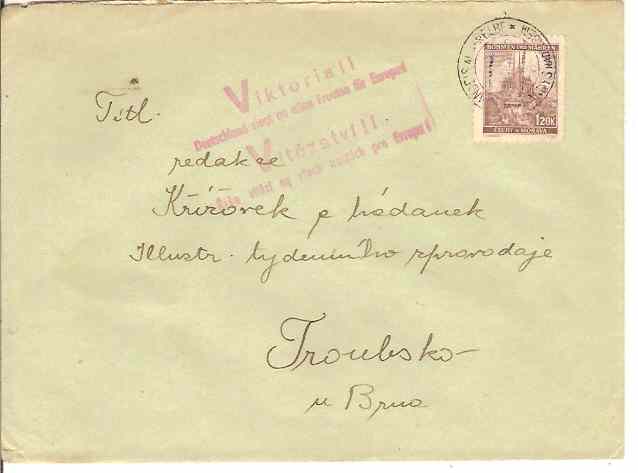 BÖHMEN UND MÄHREN
1.20K
ČECHY A MORAVA
Viktoria!!
Deutschland siegt an allen Fronten für Europa!
Vítězství!!
vítězí na všech frontách pro Evropu!
Titl.
redakce
Křížovek a hádanek
Illustr. týdenního zpravodaje
Troubsko
u Brna